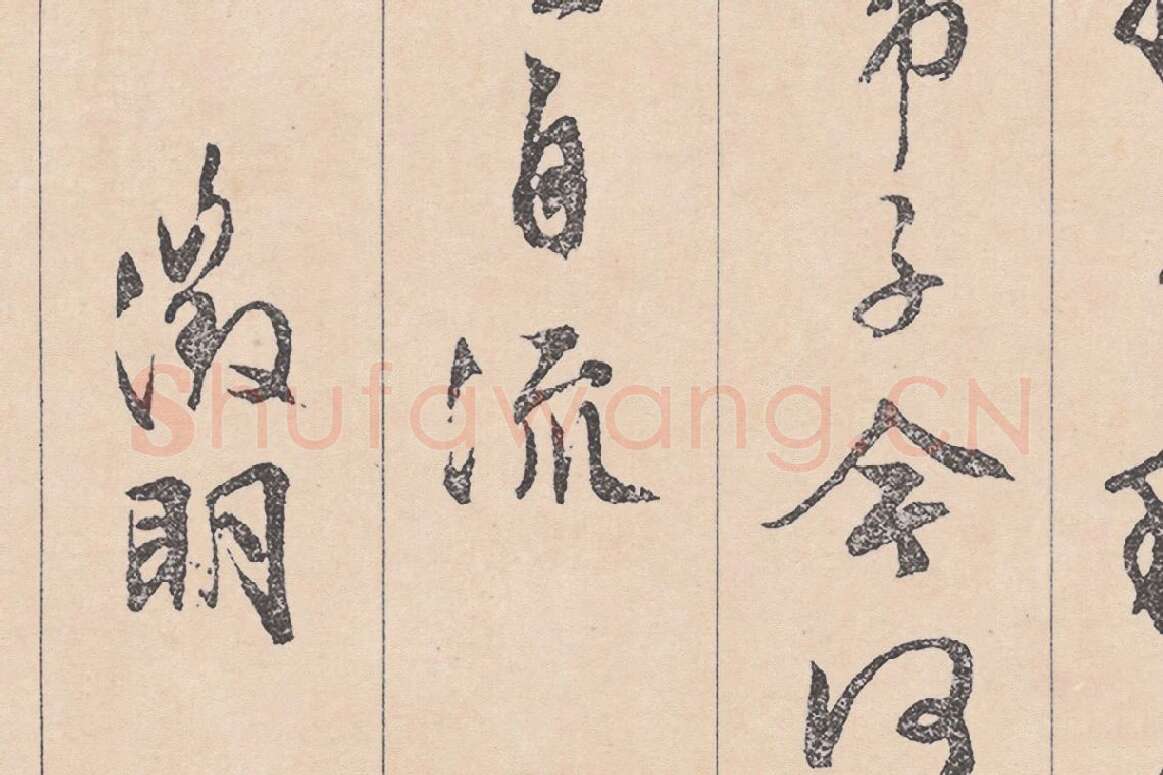 帝子今何
自流
徵明
Shufawang.CN